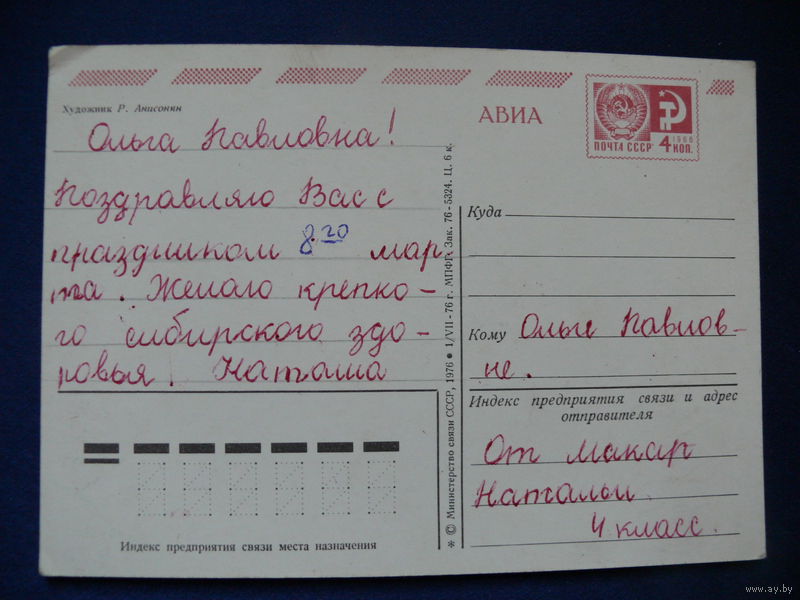 Художник Р. Анисонян
Ольга Павловна!
Поздравляю Вас с
праздником 8го мар
та. Желаю крепко-
го сибирского здо-
ровья. Наташа
Индекс предприятия связи места назначения
* © Министерство связи СССР, 1976 ● 1/VII - 76 г. МПФГ. Зак. 76-5324. Ц. 6 к.
АВИА
ПОЧТА СССР
1966
4 КОП.
Куда
Кому Ольге Павлов-
не.
Индекс предприятия связи и адрес
отправителя
От Макар
Натальи
4 класс.
www.ay.by